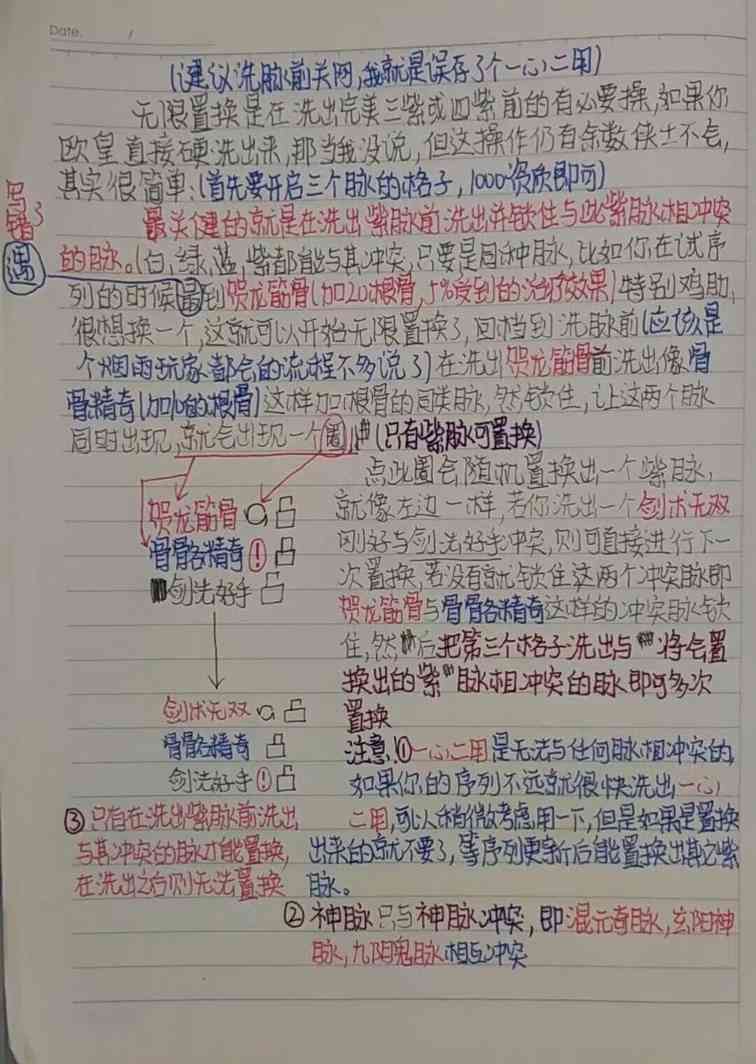 Date. /
(建议洗脉前关网,我就是误存了个一心二用)
无限置换是在洗出完美三紫或四紫前的有必要操,如果你
欧皇直接硬洗出来,那当我没说,但这操作仍有余数侠士不会,
其实很简单:(首先要开启三个脉的格子,1000资质即可)
最关健的就是在洗出紫脉前洗出并锁住与此紫脉相冲突
写错了
遇
的脉。(白,绿,蓝,紫都能与其冲突,只要是同种脉,比如你在试序
列的时候圆到贺龙筋骨(加20根骨,5%受到的治疗效果)特别鸡肋,
很想换一个,这就可以开始无限置换了,回档到洗脉前(应该是
个烟雨玩家都会的流程不多说了)在洗出贺龙筋骨前洗出像骨
骨精奇(加10的根骨)这样加根骨的同类脉,然锁住,让这两个脉
同时出现,就会出现一个圈,(只有紫脉可置换)
点此圈会随机置换出一个紫脉,
就像左边一样,若你洗出一个剑术无双
刚好与剑法好手冲突,则可直接进行下一
次置换,若没有就锁住这两个冲突脉即
贺龙筋骨与骨骼精奇这样的冲突脉锁
住,然后把第三个格子洗出与将会置
换出的紫脉相冲突的脉即可多次
置换
贺龙筋骨
骨骼精奇!
剑法好手
剑术无双
骨骼精奇
剑法好手!
注意①一心二用是无法与任何脉相冲突的,
如果你的序列不远就很快洗出一心
二用,可以稍微考虑用一下,但是如果是置换
出来的就不要了,等序列更新后能置换出其它紫
脉。
②神脉只与神脉冲突,即混元奇脉,玄阳神
脉,九阴鬼脉相互冲突
③只有在洗出紫脉前洗出
与其冲突的脉才能置换,
在洗出之后则无法置换